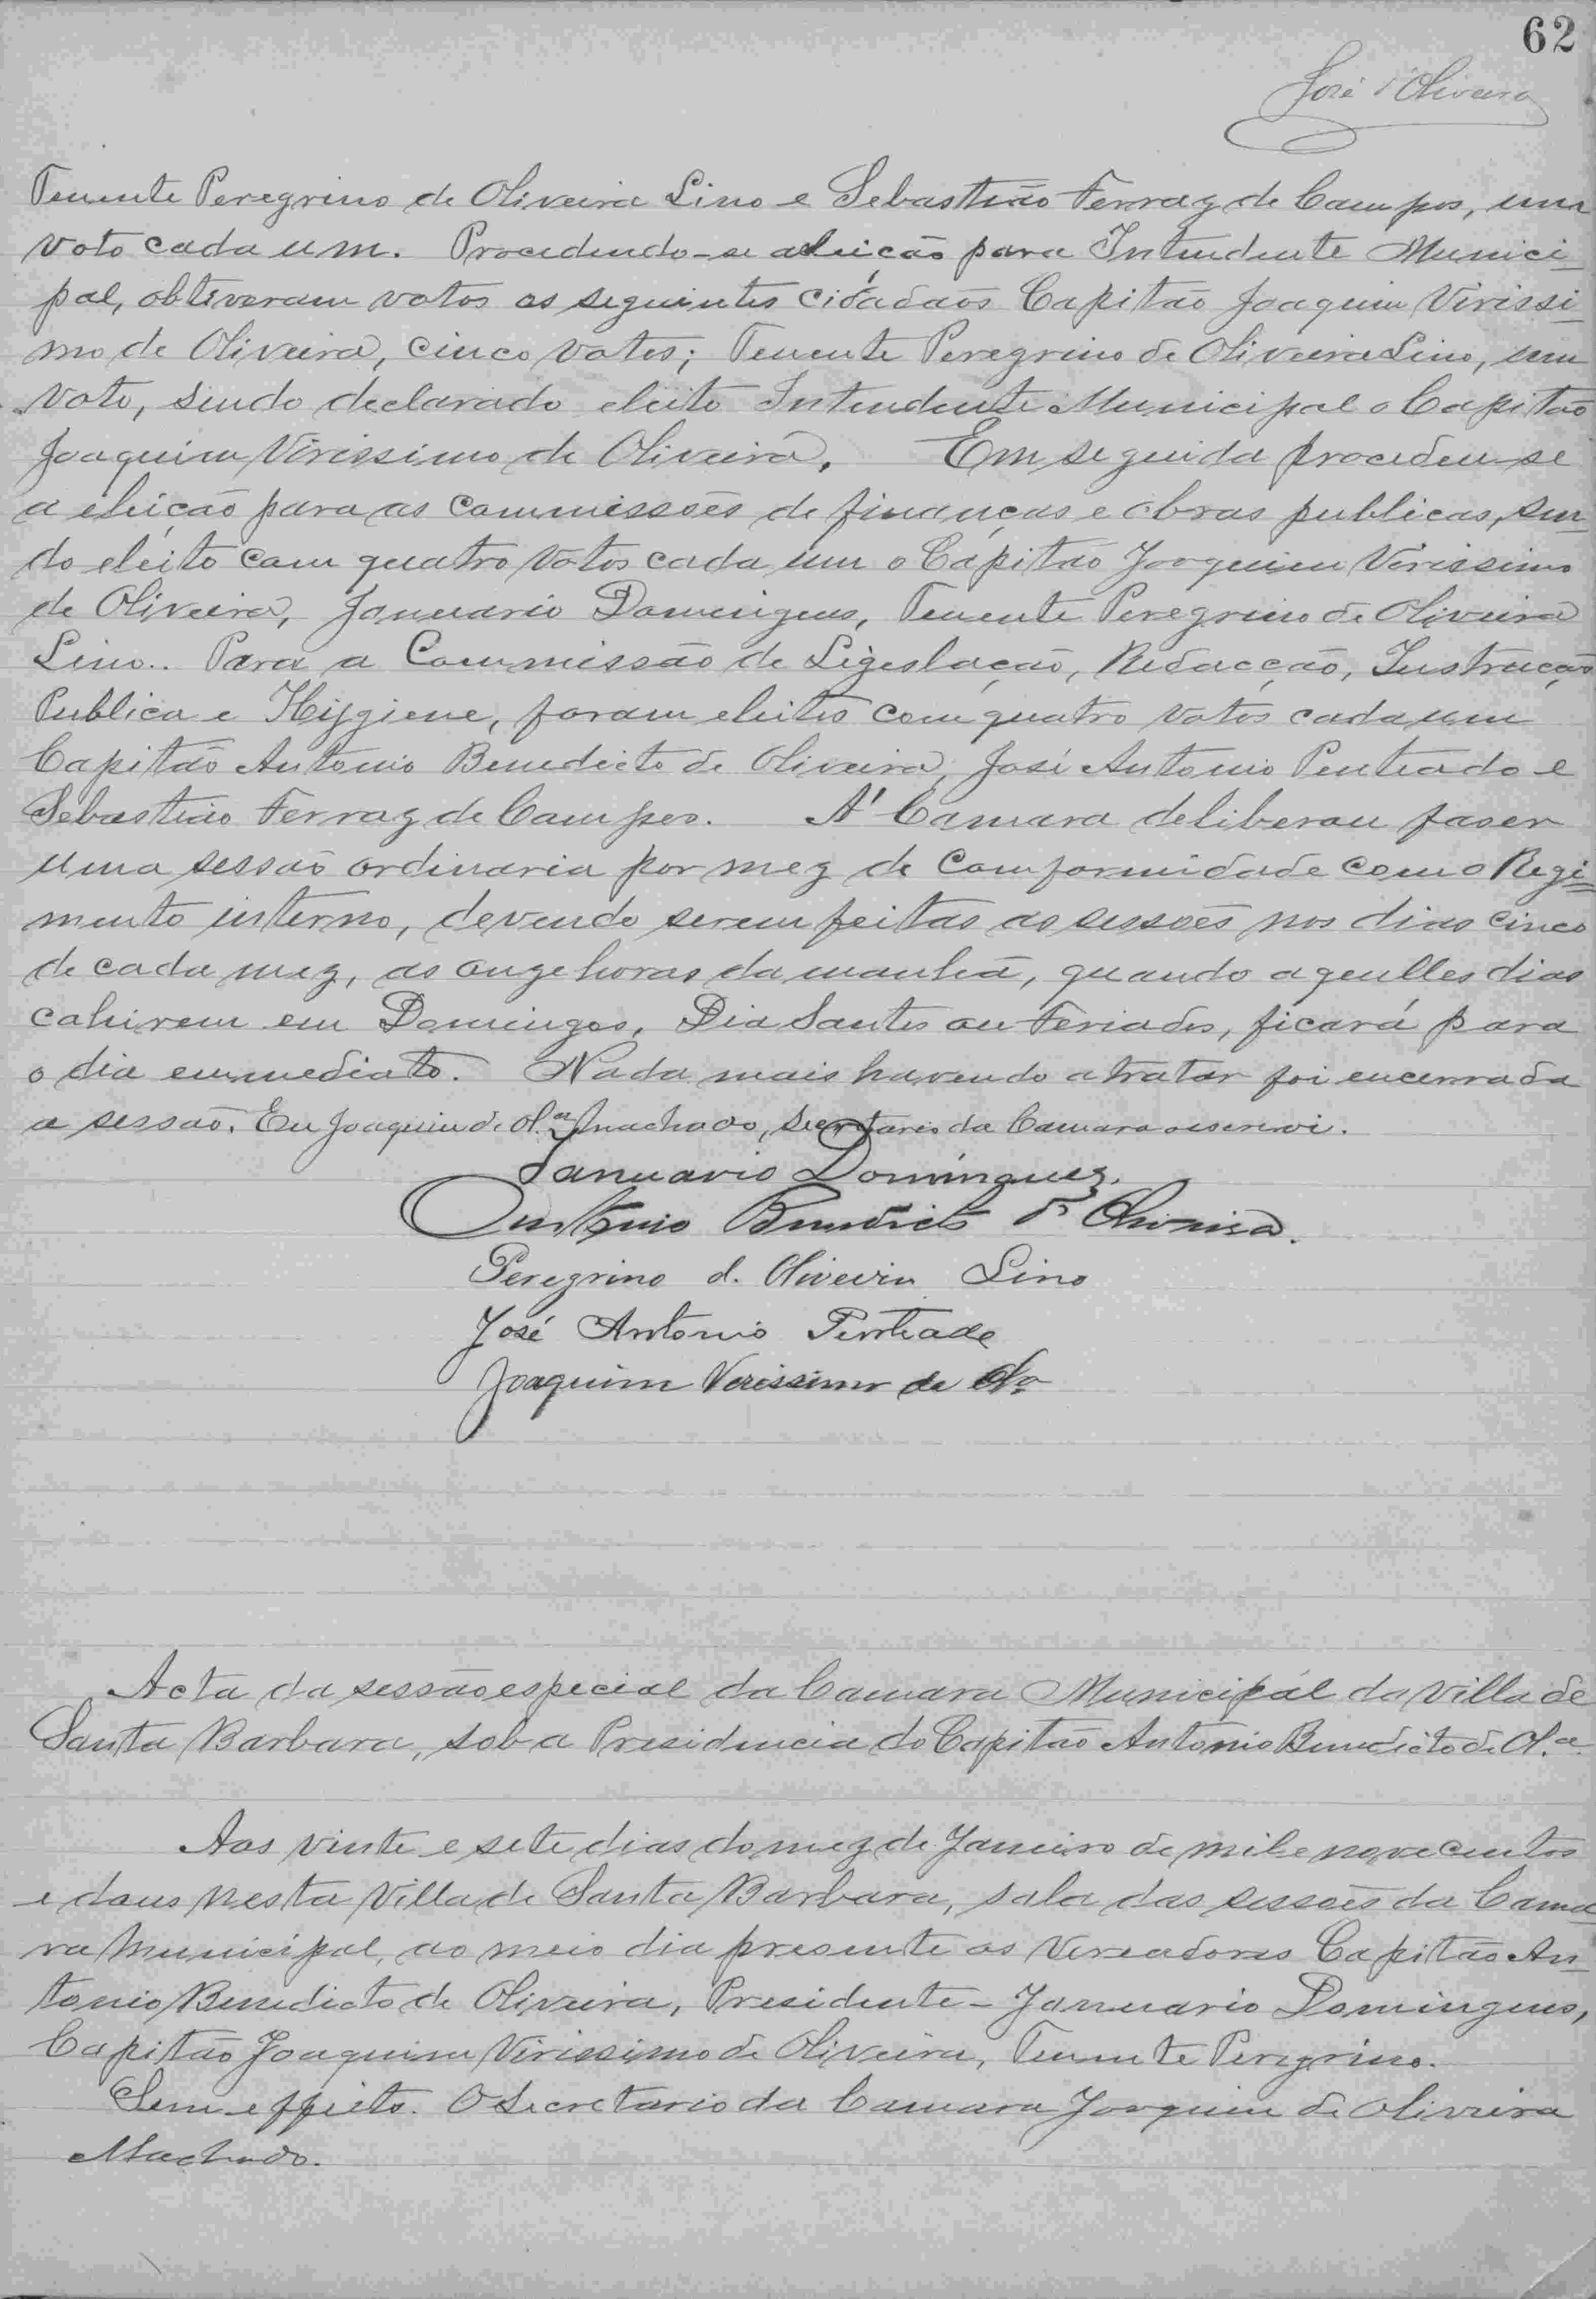 62
José d'Oliveira
Tenente Peregrino de Oliveira Lino e Sebastião Ferraz de Campos, um
voto cada um. Procedendo-se a eleição para Intendente Munici-
pal, obtiveram votos os seguintes cidadãos Capitão Joaquim Virissi-
mo de Oliveira, cinco votos; Tenente Peregrino de Oliveira Lino, um
voto, sendo declarado eleito Intendente Municipal o Capitão
Joaquim Virissimo de Oliveira. Em seguida procedeu-se
a eleição para as commissões de finanças e obras publicas, sen-
do eleito com quatro votos cada um o Capitão Joaquim Virissimo
de Oliveira, Januario Domingues, Tenente Peregrino de Oliveira
Lino.. Para a Commissão de Ligeslação, Redacção, Instrucção
Publica e Hijgiene, foram eleitos com quatro votos cada um
Capitão Antonio Benedicto de Oliveira, José Antonio Penteado e
Sebastião Ferraz de Campos. A' Camara deliberou faser
uma sessão ordinaria por mez de comformidade com o Regi-
mento interno, devendo serem feitas as sessões nos dias cinco
de cada mez, as onze horas da manhã, quando aquelles dias
cahirem em Domingos, Dia Santos ou Feriados, ficará para
o dia emmediato. Nada mais havendo a tratar foi encerrada
a sessão. Eu Joaquim de Ol.ra Machado, Secretario da Camara o escrevi.
Januario Dominguez.
Antonio Benedicto de Oliveira.
Peregrino d. Oliveira Lino
José Antonio Penteado
Joaquim Verissimo de Olra
Acta da sessão especial da Camara Municipal da Villa de
Santa Barbara, sob a Presidencia do Capitão Antonio Benedicto de Ol.a
Aos vinte e sete dias do mez de Janeiro de mil e novecentos
e dous nesta Villa de Santa Barbara, sala das sessões da Cama-
ra Municipal, ao meio dia presente os Vereadores Capitão An-
tonio Benedicto de Oliveira, Presidente - Januario Domingues,
Capitão Joaquim Virissimo de Oliveira, Tenente Peregrino.
Sem effeito. O Secretario da Camara Joaquim de Oliveira
Machado.